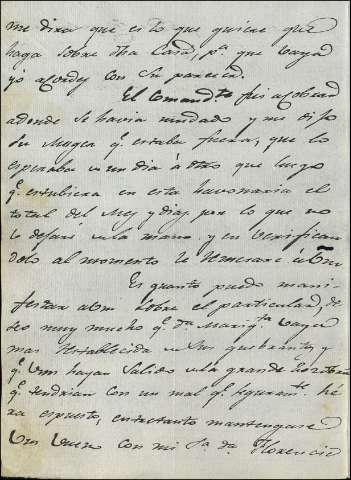 me dira que es lo que quiere que
haga sobre dha Casa, pa. que vaya
yó acorde con su parecer.
El Comandte. fui a cobrar
adonde se havia mudado y me dijo
su Muger qe. estaba fuera, que lo
esperaba de un dia á otro que luego
qe. estubiera en esta havonaria el
total del Mes y dias por lo que no
lo dejaré de la mano, y en verifican
dolo al momento le remesare á Vm
Es quanto puedo mani-
festar a Vm sobre el particular, de
seo muy mucho qe. Da. Margta. vaya
mas restablecida de sus quebrantos, y
qe. Vms hayan salido de la grande
qe. tendrian con un mal qe. segurante. hé
ra espuesto, entretanto mantengase
Vm bueno con mi Sa. Da. Florencia